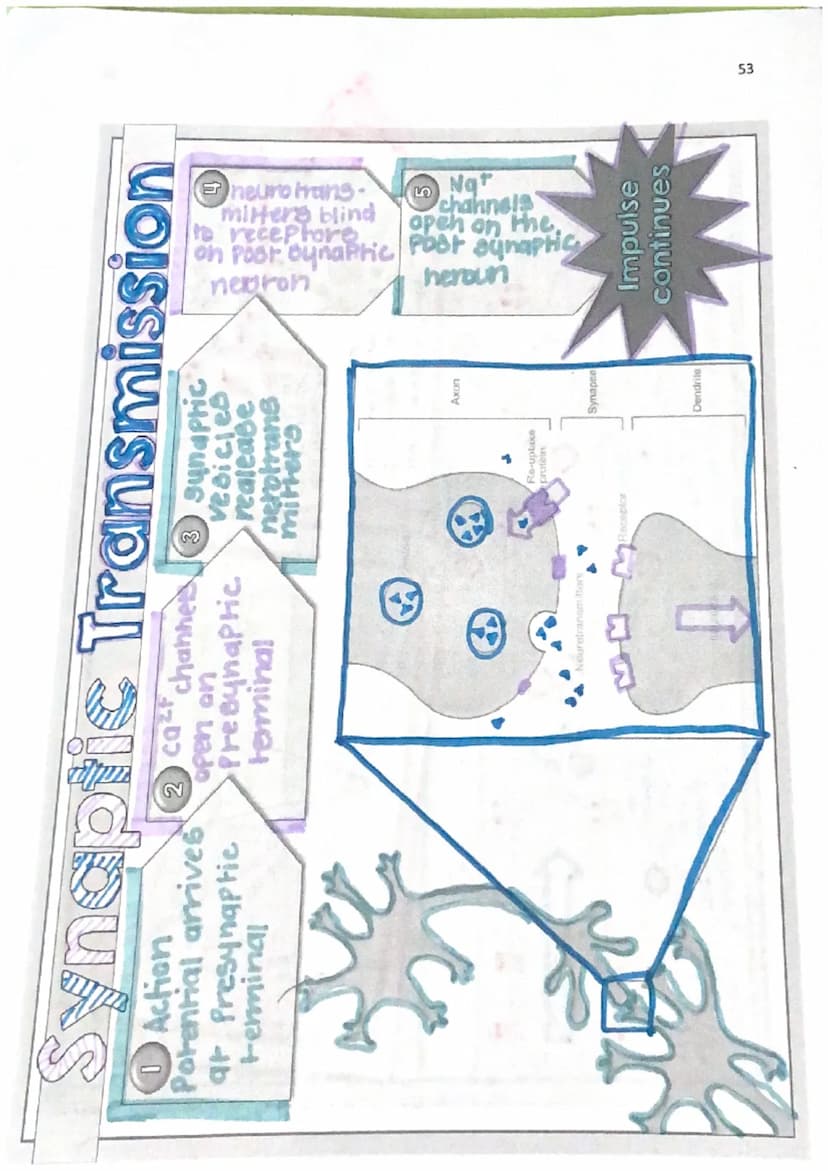 53
Synaptic Transmission
1 Action
Potential arrives
at Presynaptic
terminal
2 Ca2+ channels
open on
Presynaptic
terminal
3 synaptic
vesicles
realease
nerotrans
mitters
4 neurotrans-
mitters blind
to receptors
on post synaptic
neuron
5 Na+
channels
open on the
post synaptic
neroun
Impulse
continues
Axon
Synapse
Dendrite
Re-uptake
protein
Neurotransmitters
Receptor